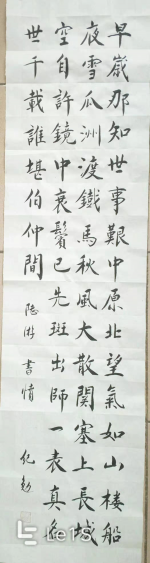 早歲那知世事艱中原北望氣如山樓船
夜雪瓜洲渡鐵馬秋風大散關塞上長城
空自許鏡中衰鬢已先斑出師一表真名
世千載誰堪伯仲間
陸游書情
LeTS